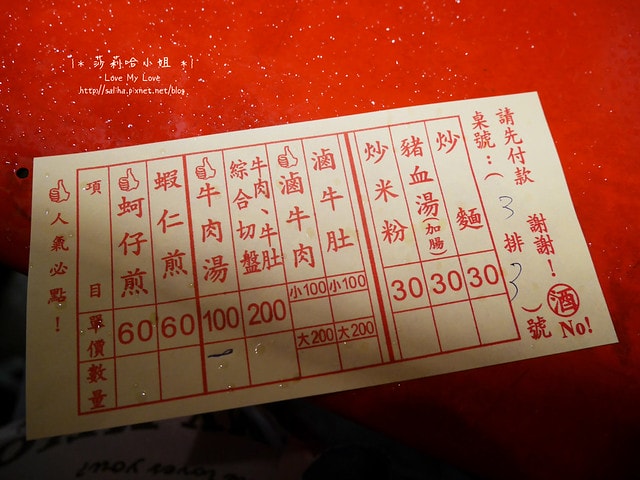 |* 莎莉哈小姐 *|
Love My Love
http://saliha.pixnet.net/blog
請先付款 謝謝！
桌號：( 3 排 3 )號
酒 No!
炒麵 30
豬血湯(加腸) 30
炒米粉 30
滷牛肚 小100 大200
滷牛肉 小100 大200
牛肉、牛肚綜合切盤 200
牛肉湯 100 一
蝦仁煎 60
蚵仔煎 60
項目 單價 數量
人氣必點！